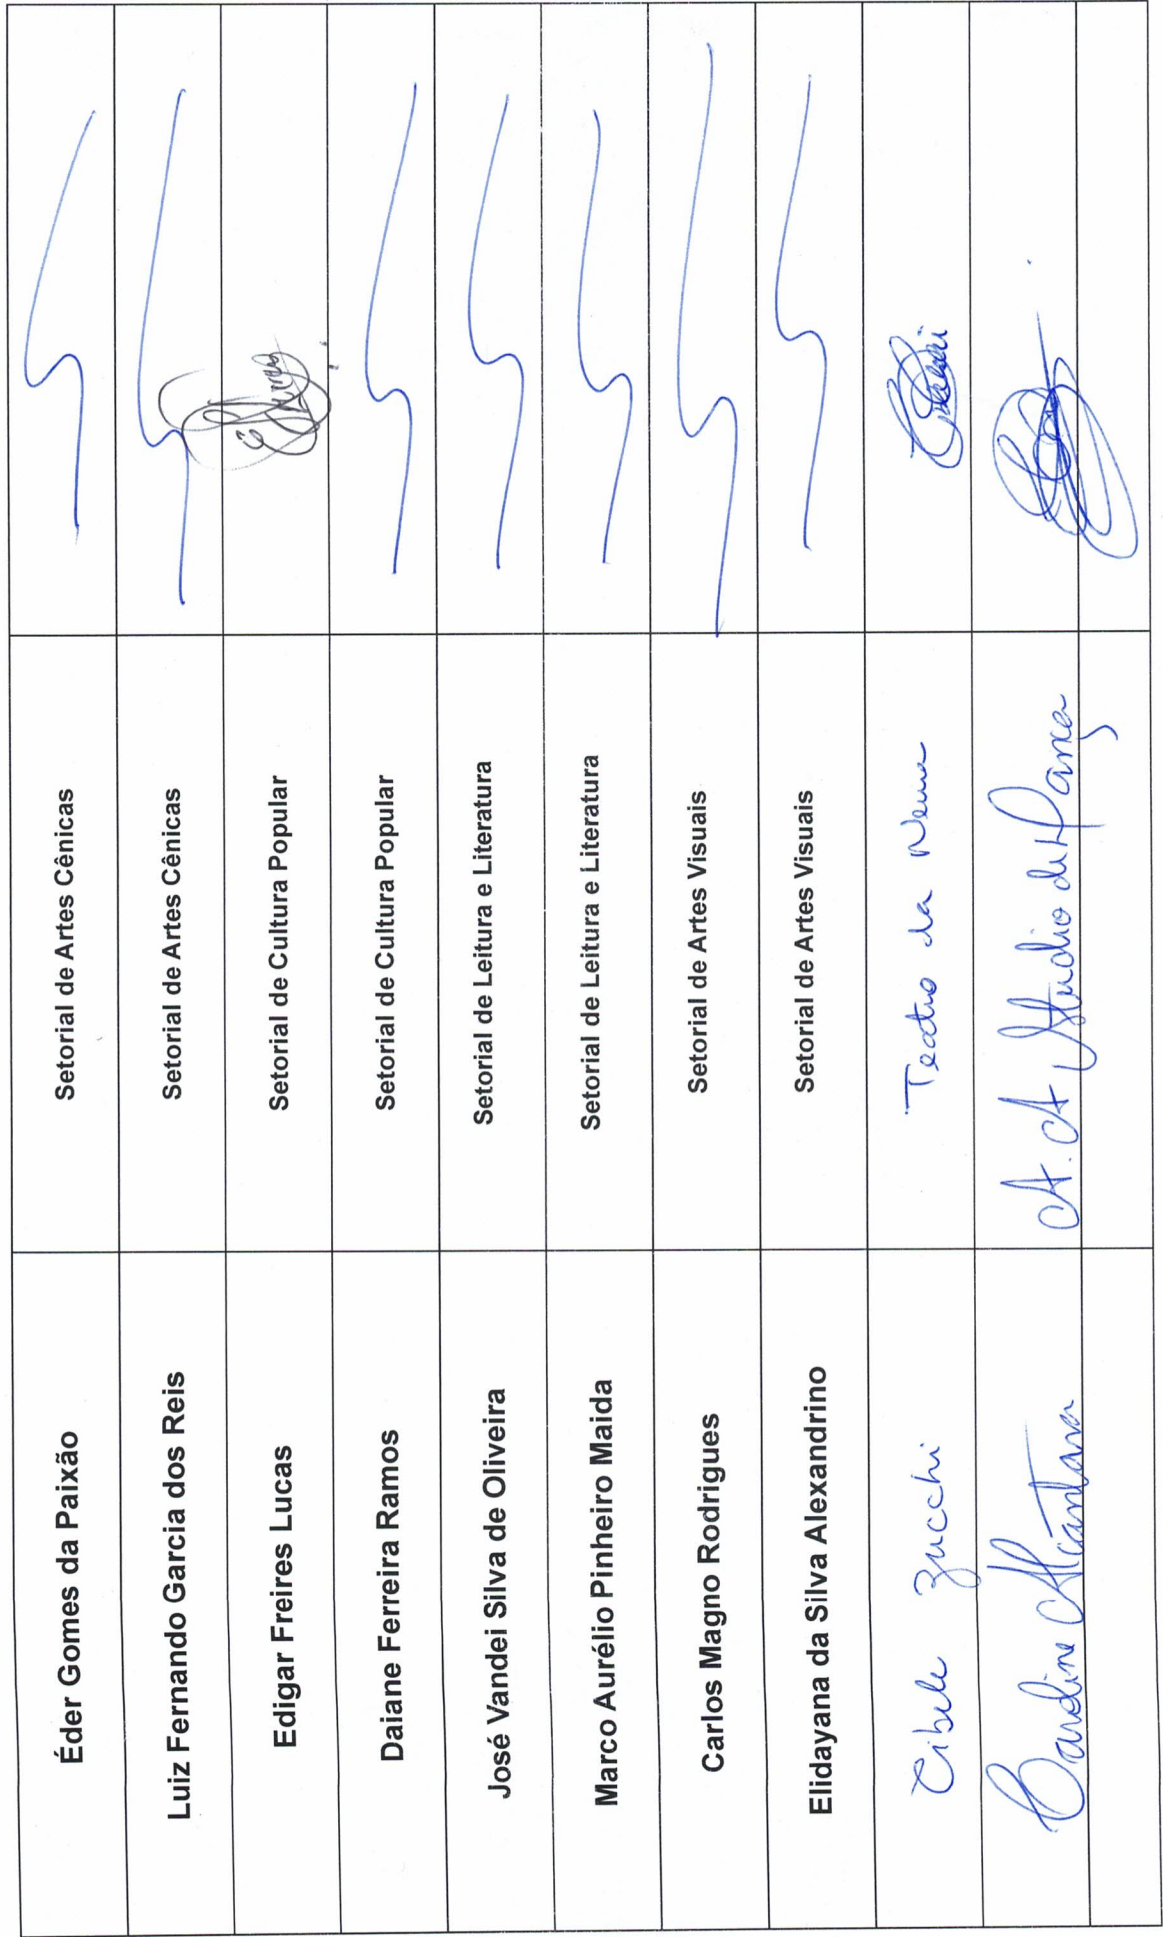 Éder Gomes da Paixão Setorial de Artes Cênicas
Luiz Fernando Garcia dos Reis Setorial de Artes Cênicas
Edigar Freires Lucas Setorial de Cultura Popular
Daiane Ferreira Ramos Setorial de Cultura Popular
José Vandei Silva de Oliveira Setorial de Leitura e Literatura
Marco Aurélio Pinheiro Maida Setorial de Leitura e Literatura
Carlos Magno Rodrigues Setorial de Artes Visuais
Elidayana da Silva Alexandrino Setorial de Artes Visuais
Cibele Zucchi Teatro da Neura
Alcantara A. A Studio de Dança